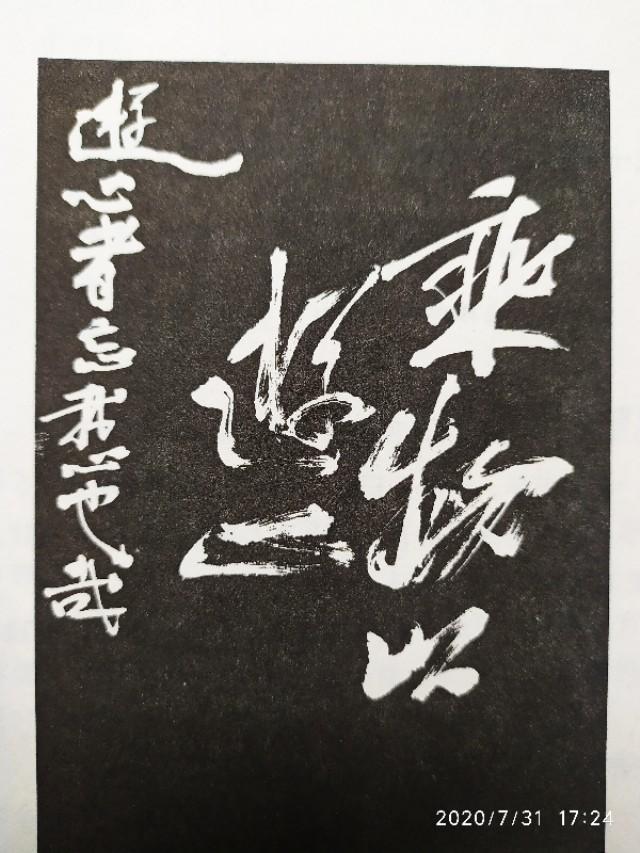 乘物以
遊心
遊心者忘我心也哉
2020/7/31 17:24